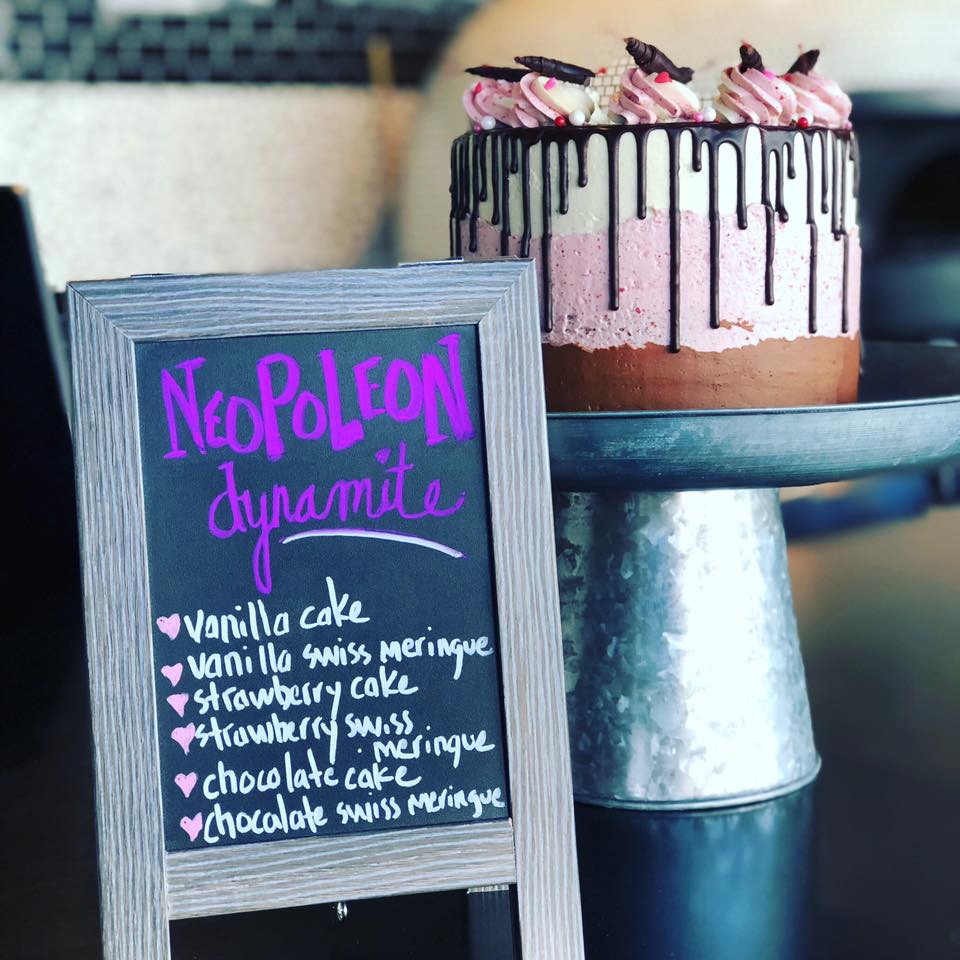 NEOPOLEON
dynamite
vanilla cake
vanilla swiss meringue
strawberry cake
strawberry swiss
meringue
chocolate cake
chocolate swiss meringue